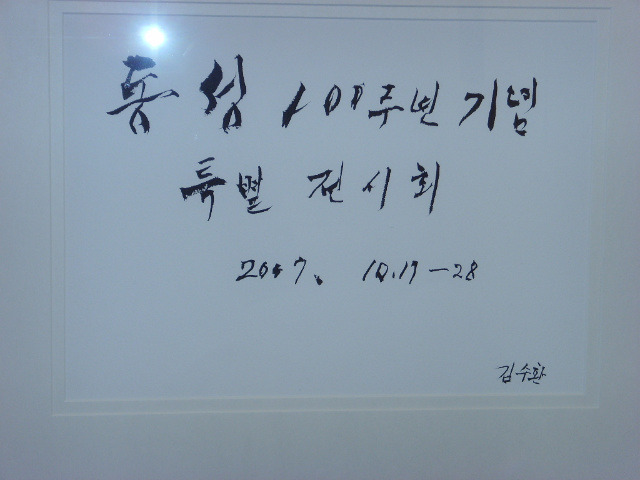 동성 100주년 기념
특별 전시회
2007. 10.17-28
김수환